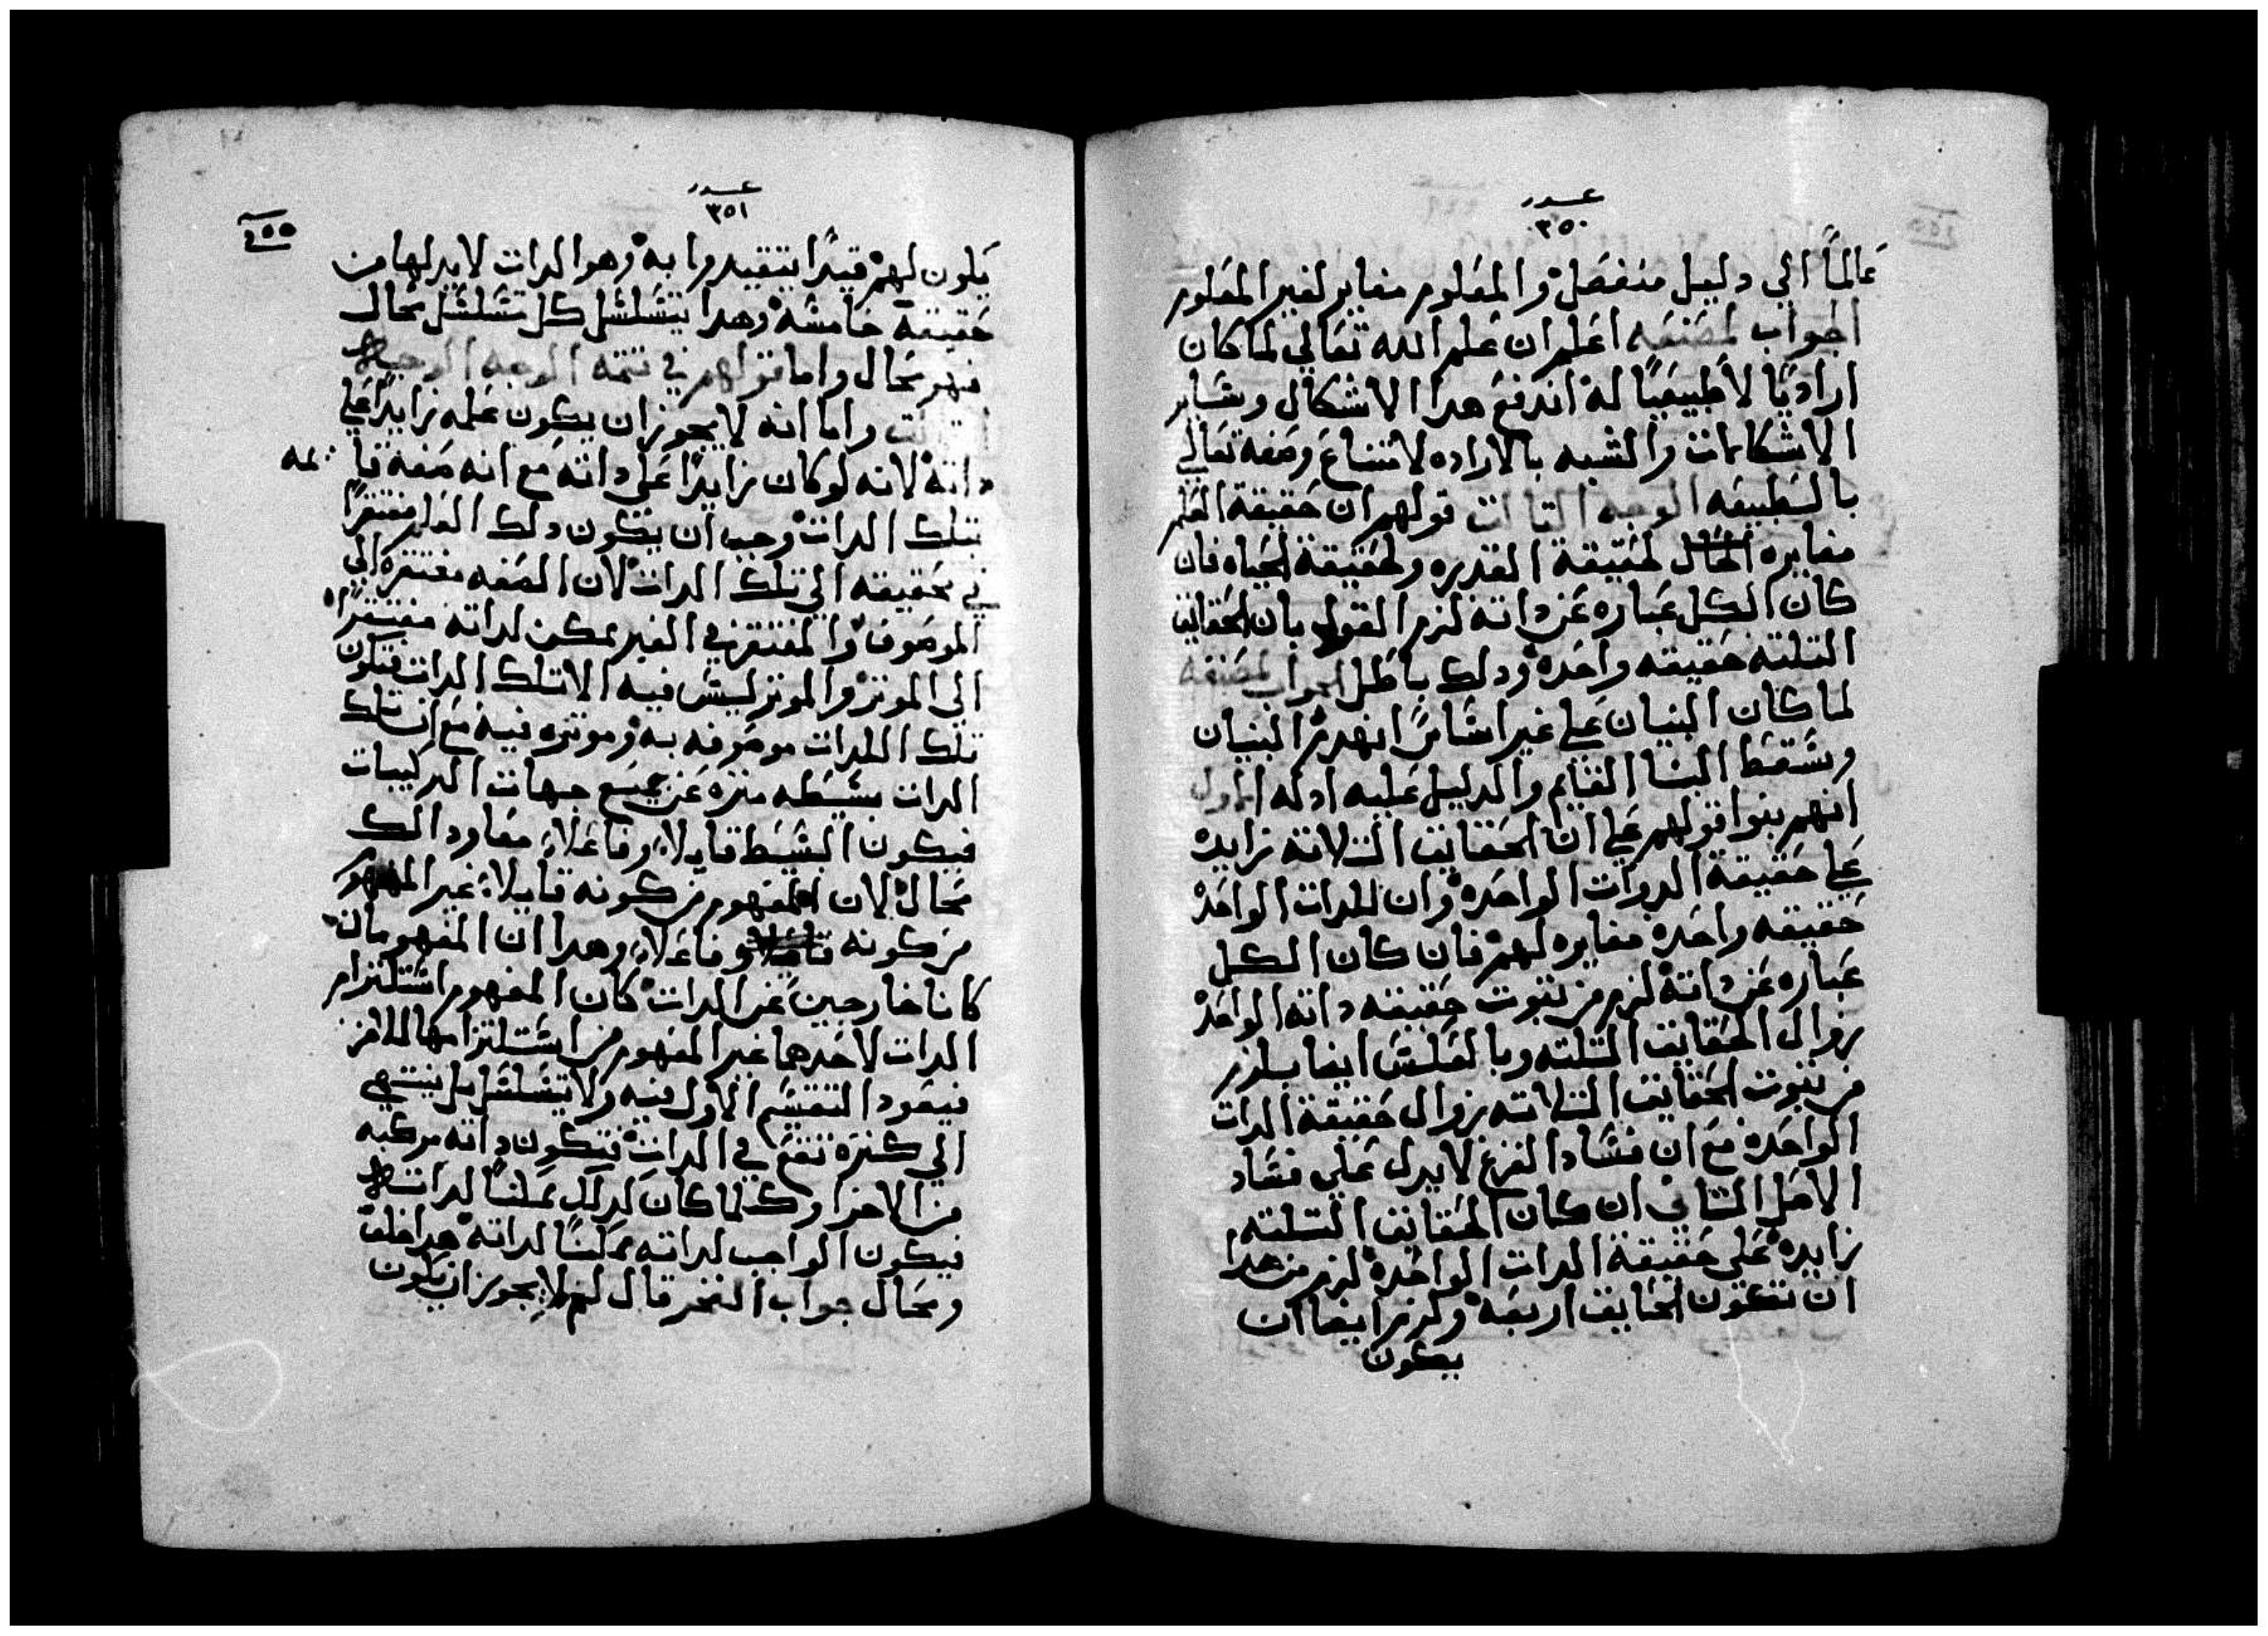 عدد
٣٥٠
عالماً الي دليل منفصل والمعلوم مغاير لغير المعلوم
الجواب لمصنفه اعلم ان علم الله تعالي لما كان
اراديًا لا طبيعيًا له اندفع هدا الاشكال وساير
الاشكالات والشبه بالاراده لامتناع وصفه تعالي
بالطبيعه الوجه التالت قولهم ان حقيقة العلم
مغايره لحقيقة القدره ولحقيقة الحياه فان
كان الكل عباره عن داته لزم القول بان الحقايق
التلته حقيقه واحده ودلك باطل الجواب لمصنفه
لما كان البنيان علي غير اساس انهدم البنيان
وسقط البنا القايم والدليل عليه ادله الاول
انهم بنوا قولهم علي ان الحقايق التلاته زايده
علي حقيقة الدوات الواحده وان للدات الواحده
حقيقه واحده مغايره لهم فان كان الكل
عباره عن داته لزم من تبوت حقيقه داته الواحده
زوال الحقايق التلته وبالعكس ايضا يلزم
من تبوت الحقايق التلاته زوال حقيقة الدات
الواحده مع ان فساد الفرع لا يدل علي فساد
الاصل التاني ان كان الحقايق التلته
زايده علي حقيقة الدات الواحده لزم من هدا
ان تكون الحقايق اربعه ولزم ايضا ان
يكون
عدد
٣٥١
يكون لهم قيدًا يتقيدوا به وهو الدات لابد لها من
حقيقة خامسه وهدا يتسلسل كل تسلسل محال
فهو محال واما قولهم في تتمه الوجه
واما انه لا يجوز ان يكون علمه زايدًا علي
داته لانه لو كان زايدًا علي داته مع انه صفة قا يمه
بتلك الدات وجب ان يكون دلك العلم مفتقرًا
في تحقيقه الي تلك الدات لان الصفه مفتقره الي
الموصوف والمفتقر الي الغير ممكن لداته مفتقرًا
الي الموتر والموتر ليس فيه الا تلك الدات فتكون
تلك الدات موصوفه به وموتره فيه مع ان تلك
الدات بسيطه منزه عن جميع جهات التركيبات
فيكون البسيط قابلاً وفاعلاً معا ودالك
محال لان المفهوم من كونه قابلاً غير المفهوم
من كونه فاعلاً وهدا ان المفهومان
كانا خارجين عن الدات كان المفهوم استلزام
الدات لاحدهما غير المفهوم من استلزامها للاخر
فيعود التقسيم الاول فيه ولا يتسلسل بل ينتهي
الي كتره تقع في الدات فتكون داته مركبه
من الاجزا وكلما كان كدلك ممكنًا لداته
فيكون الواجب لداته ممكنًا لداته هدا خلف
ومحال جواب الفخر قال لم لا يجوز ان يكون